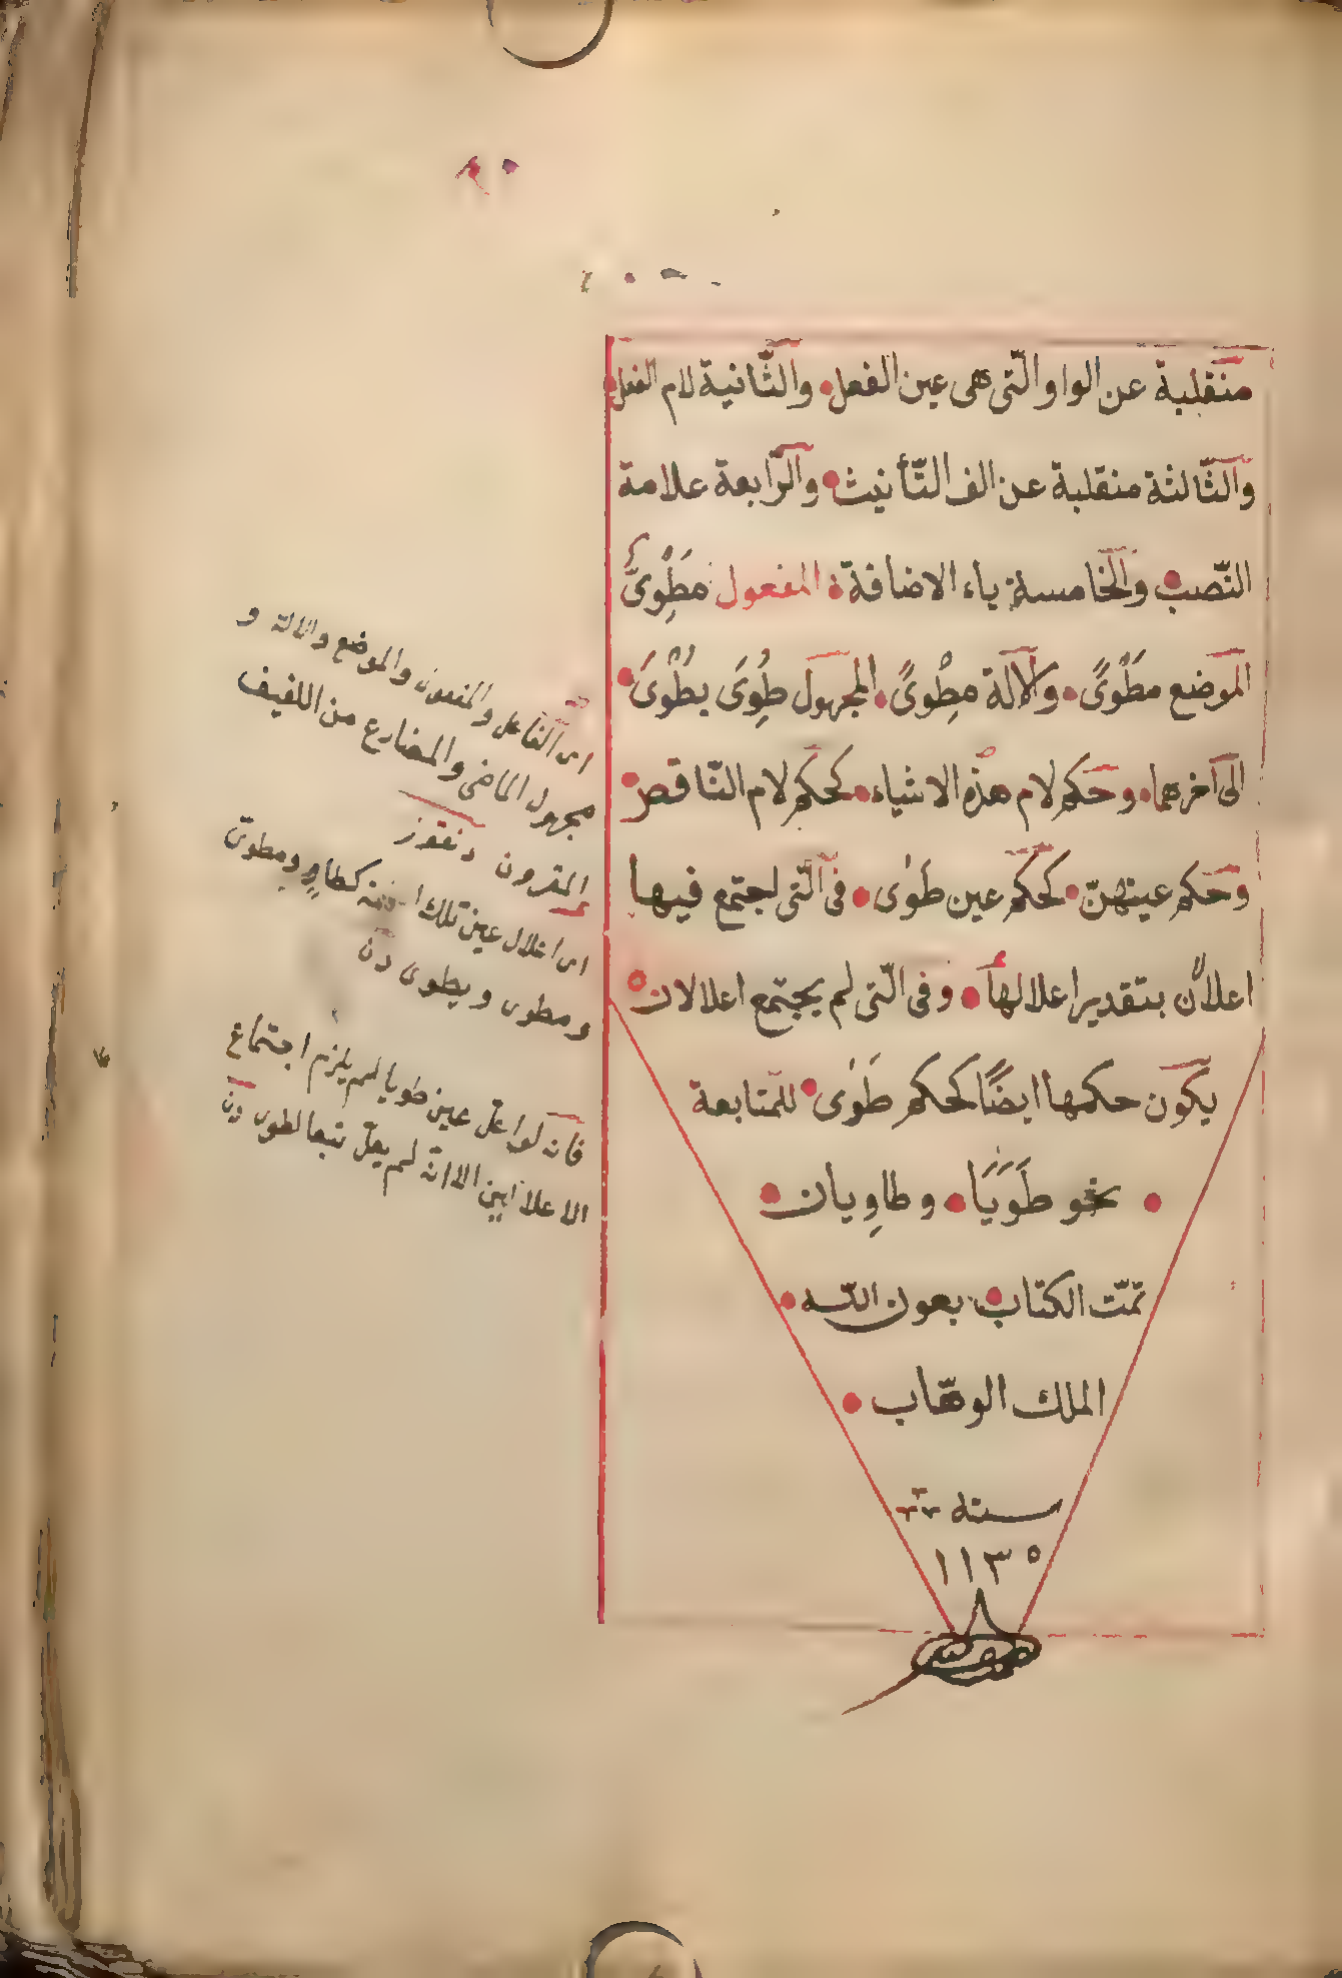 منقلبة عن الواو الّتى هى عين الفعل والثّانية لام الفعل
والثّالثة منقلبة عن الف التّأنيث والرّابعة علامة
النّصب والخامسة ياء الاضافة المفعول مَطْوِىٌّ
الموضع مَطْوًى والآلة مِطْوًى المجهول طُوِىَ يُطْوَىٰ
الى آخرهما وحكم لام هذه الاشياء كحكم لام النّاقص
وحكم عينهنّ كحكم عين طَوٰى فى الّتى اجتمع فيها
اعلالان بتقدير اعلالها وفى الّتى لم يجتمع اعلالان
يكون حكمها ايضًا كحكم طَوٰى للمتابعة
نحو طَوَيَا وطاوِيان
تمّت الكتاب بعون اللّه
الملك الوهّاب
سنه
١١٣٥
اى الفاعل والمفعول والموضع والالة و
مجهول الماضى والمضارع من اللفيف
المقرون
اى اعلال عين تلك كطاوٍ ومطوىّ
ومطوى ويطوى
فانه لو اعلّ عين طويا لم يلزم اجتماع
الا انّه لم يعلّ تبعا لطوى